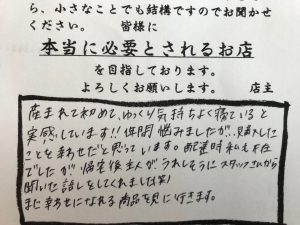 ら、小さなことでも結構ですのでお聞かせ
ください。　皆様に
本当に必要とされるお店
を目指しております。
よろしくお願いします。　店主
産まれて初めて、ゆっくり気持ちよく寝ていると
実感しています!! 年間悩みましたが、購入した
ことを幸わせだと思っています。配達時私も不在
でしたが帰宅後主人がうれしそうにスタッフさんから
聞いた話しをしてくれました(笑)
また幸わせになれる商品を見に行きます。